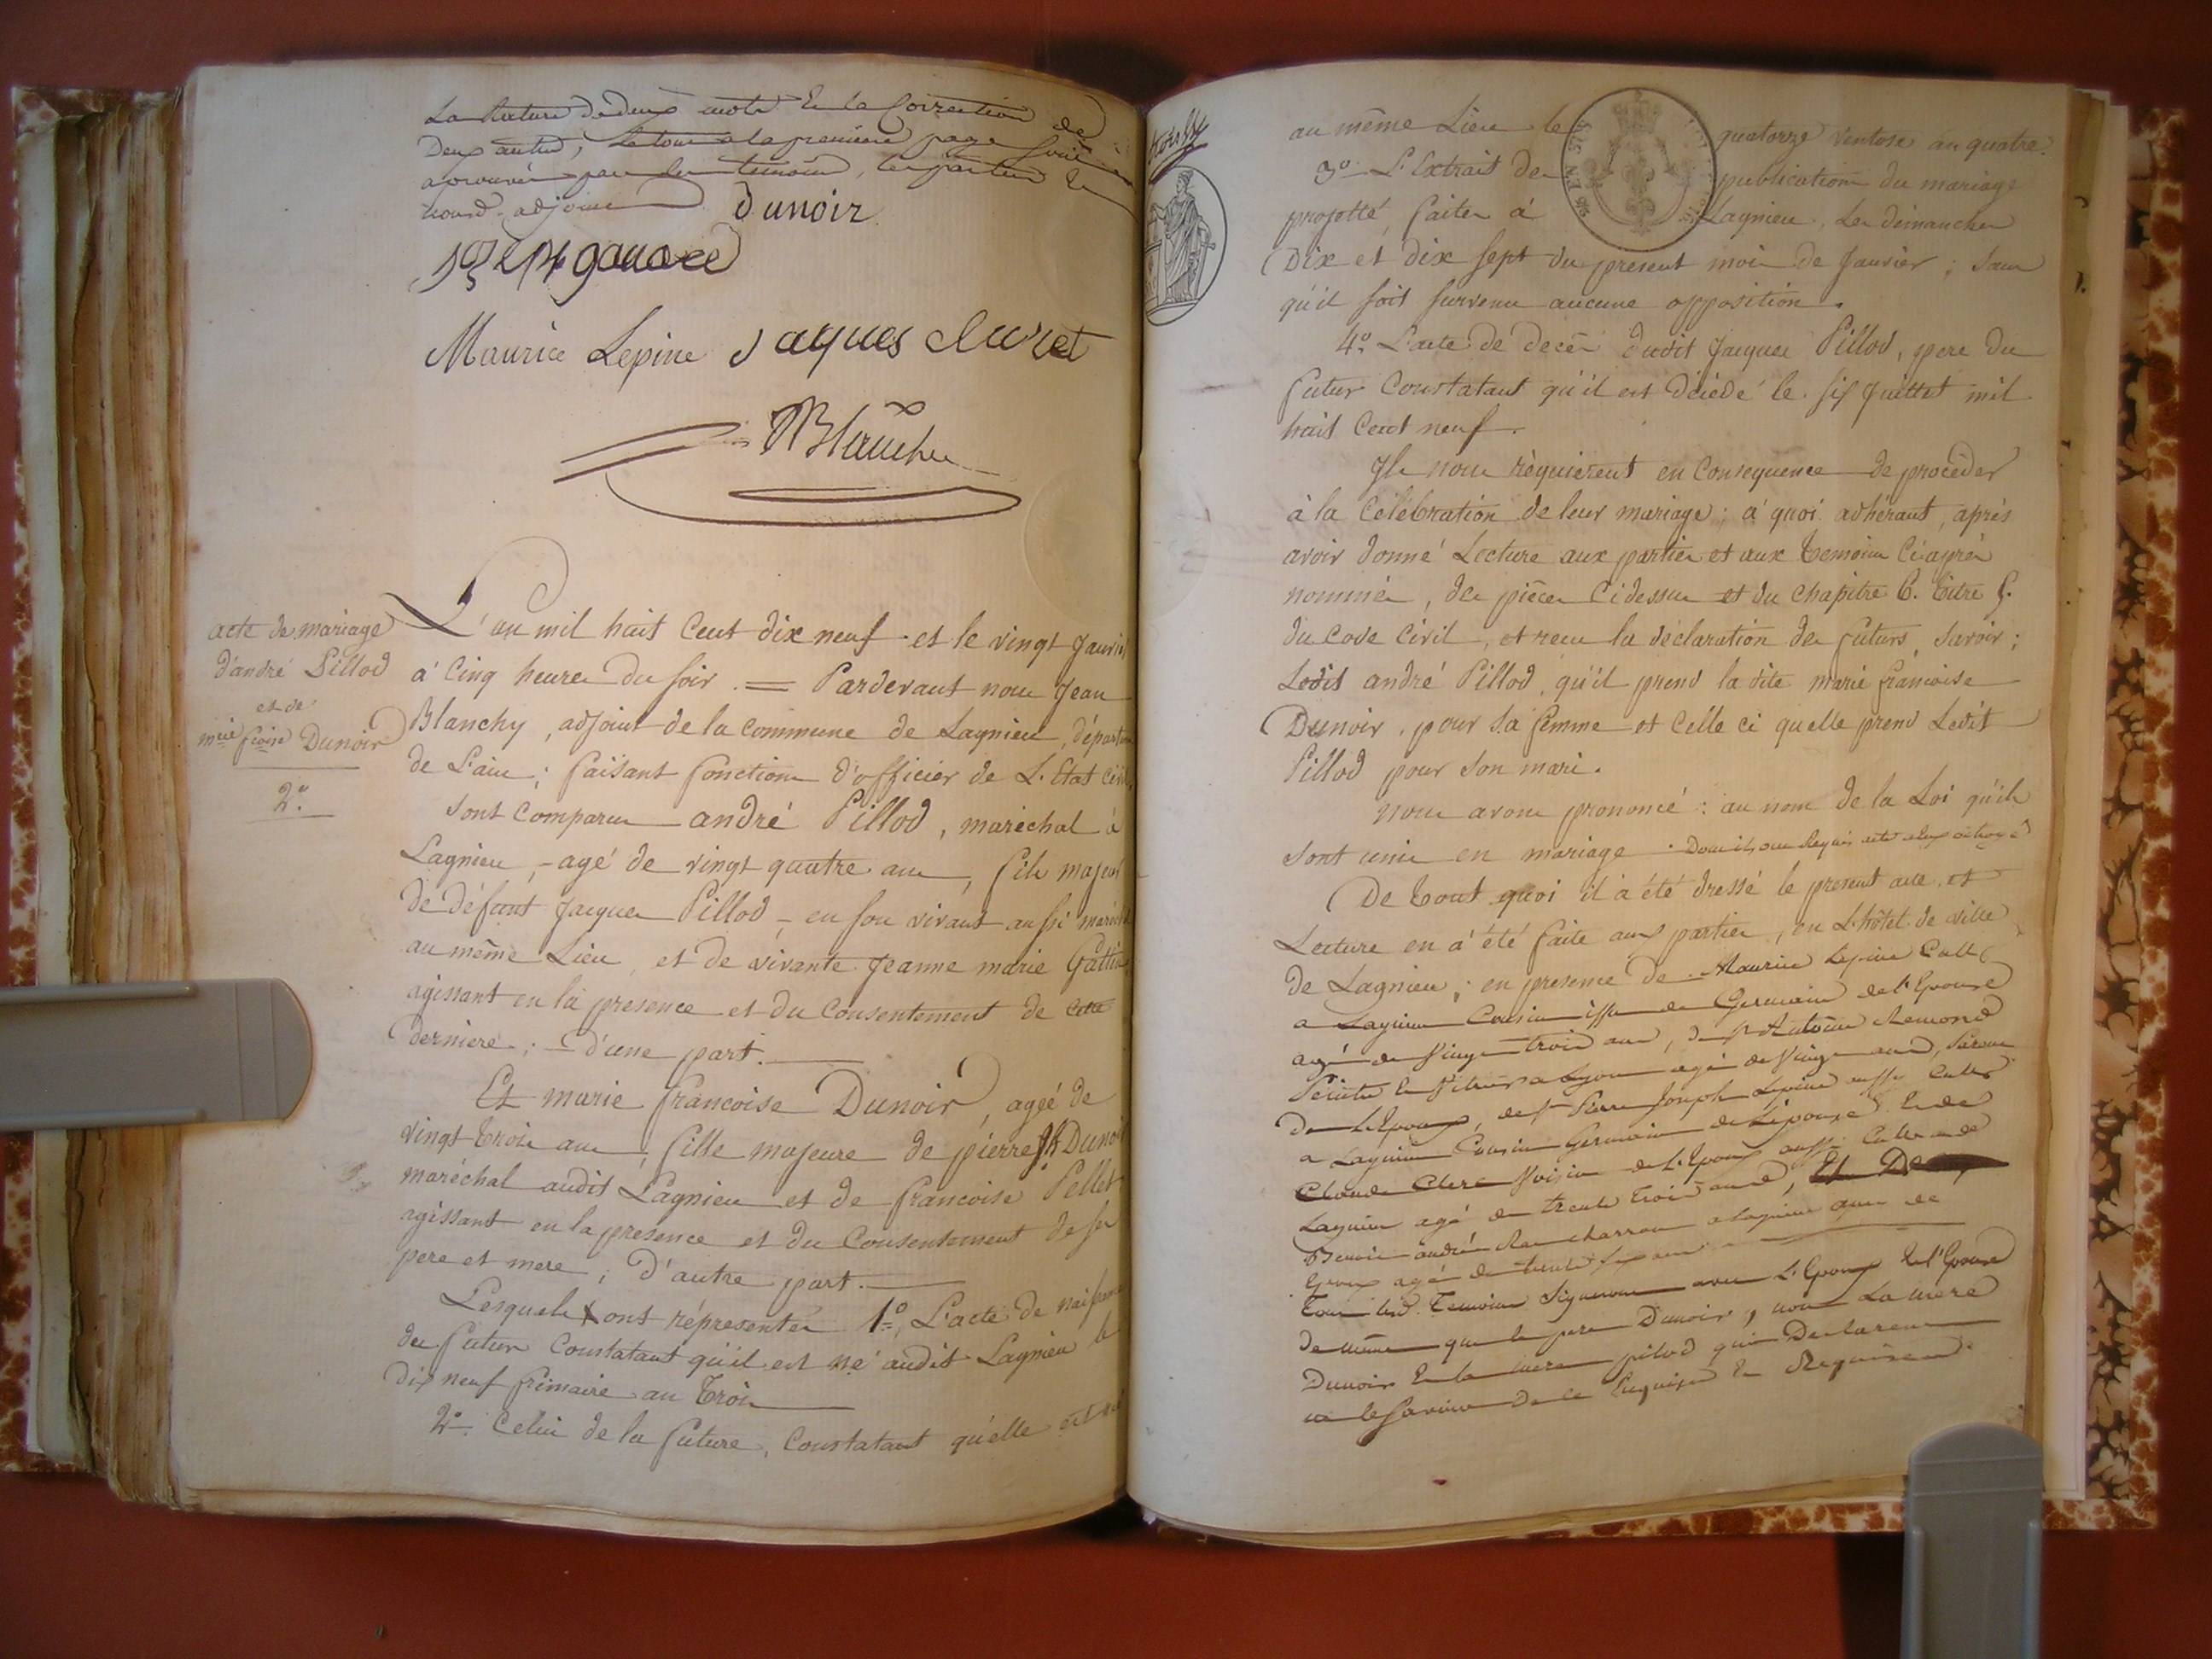 La Rature de deux mots Et la Correction de
Deux autres, Le tout a la premiere page sont
aprouvés par les temoins, les parties Et
nous d. adjoint
Dunoir
Joseph
Maurice Lepine Jaques
Blanchy
acte de mariage
d'andré Pillod
et de
mie frcoise Dunoir
2e.
L'an mil huit Cent dix neuf et le vingt Janvier
à Cinq heures du soir. = Pardevant nous Jean
Blanchy, adjoint de la commune de Lagnieu, départem
de L'ain; faisant fonctions d'officier de L'Etat Civil,
Sont Comparus andré Pillod, maréchal à
Lagnieu, - agé de vingt quatre ans, fils majeur
de défunt Jacques Pillod - en son vivant aussi maréchal
au même Lieu, et de vivante Jeanne marie
agissant en la presence et du Consentement de cette
derniere; - d'une part.
Et marie francoise Dunoir, agée de
vingt trois ans, fille majeure de pierre Dunoir
maréchal audit Lagnieu et de francoise Pellet
agissant en la presence et du Consentement de ses
pere et mere; d'autre part.
Lesquels ont réprésentés 1o. L'acte de naissance
du futur Constatant qu'il est né audit Lagnieu le
dix neuf frimaire an trois
2o. Celui de la future, Constatant qu'elle est née
au même Lieu le quatorze ventose an quatre.
3o. L'Extrait des publications du mariage
projetté, faites à Lagnieu, les dimanches
Dix et dix sept du present mois de Janvier; sans
qu'il soit survenu aucune opposition.
4o. L'acte de décès dudit Jacques Pillod, pere du
futur Constatant qu'il est décédé le six Juillet mil
huit Cent neuf.
Ils nous réquierent en Consequence de procéder
à la Célébration de leur mariage; à quoi adhérant, après
avoir donné Lecture aux parties et aux temoins Ciaprès
nommés, des pièces Cidessus et du chapitre 6. titre 5.
du Code Civil, et recu la déclaration des futurs, Savoir;
Ledit andré Pillod, qu'il prend la dite marie francoise
Dunoir, pour sa femme et Celle ci quelle prend Ledit
Pillod pour son mari.
nous avons prononcé: au nom de la Loi qu'ils
sont unis en mariage. Dont ils ont Requis acte a eux octroyé
De tout quoi il à été dressé le present acte, et
Lecture en a été faite aux parties, en L'hôtel de ville
de Lagnieu; en presence de Maurice Lepine Cultr
a Lagnieu Cousin issu de Germain de l'Epouse
agé de Vingt trois ans, de sr Antoine Remond
Peintre Et Vitrier a Lyon agé de Vingt ans, Parent
de L'Epoux, de sr Pierre Joseph Lepine aussi Cultr
a Lagnieu Cousin Germain de L'épouse Et de
Claude Clerc Voisin de L'Epoux aussi Cultr de
Lagnieu agé de trente trois ans, Et De
Benoit andré charron a Lagnieu amis de
Epoux agé de trente six ans
Tous Lesd. Temoins Signeront avec L'Epoux Et l'Epouse
de même que le pere Dunoir, non La mere
Dunoir Et la mere pilod qui Declarent
ne le Savoir de ce Enquises Et Requises.